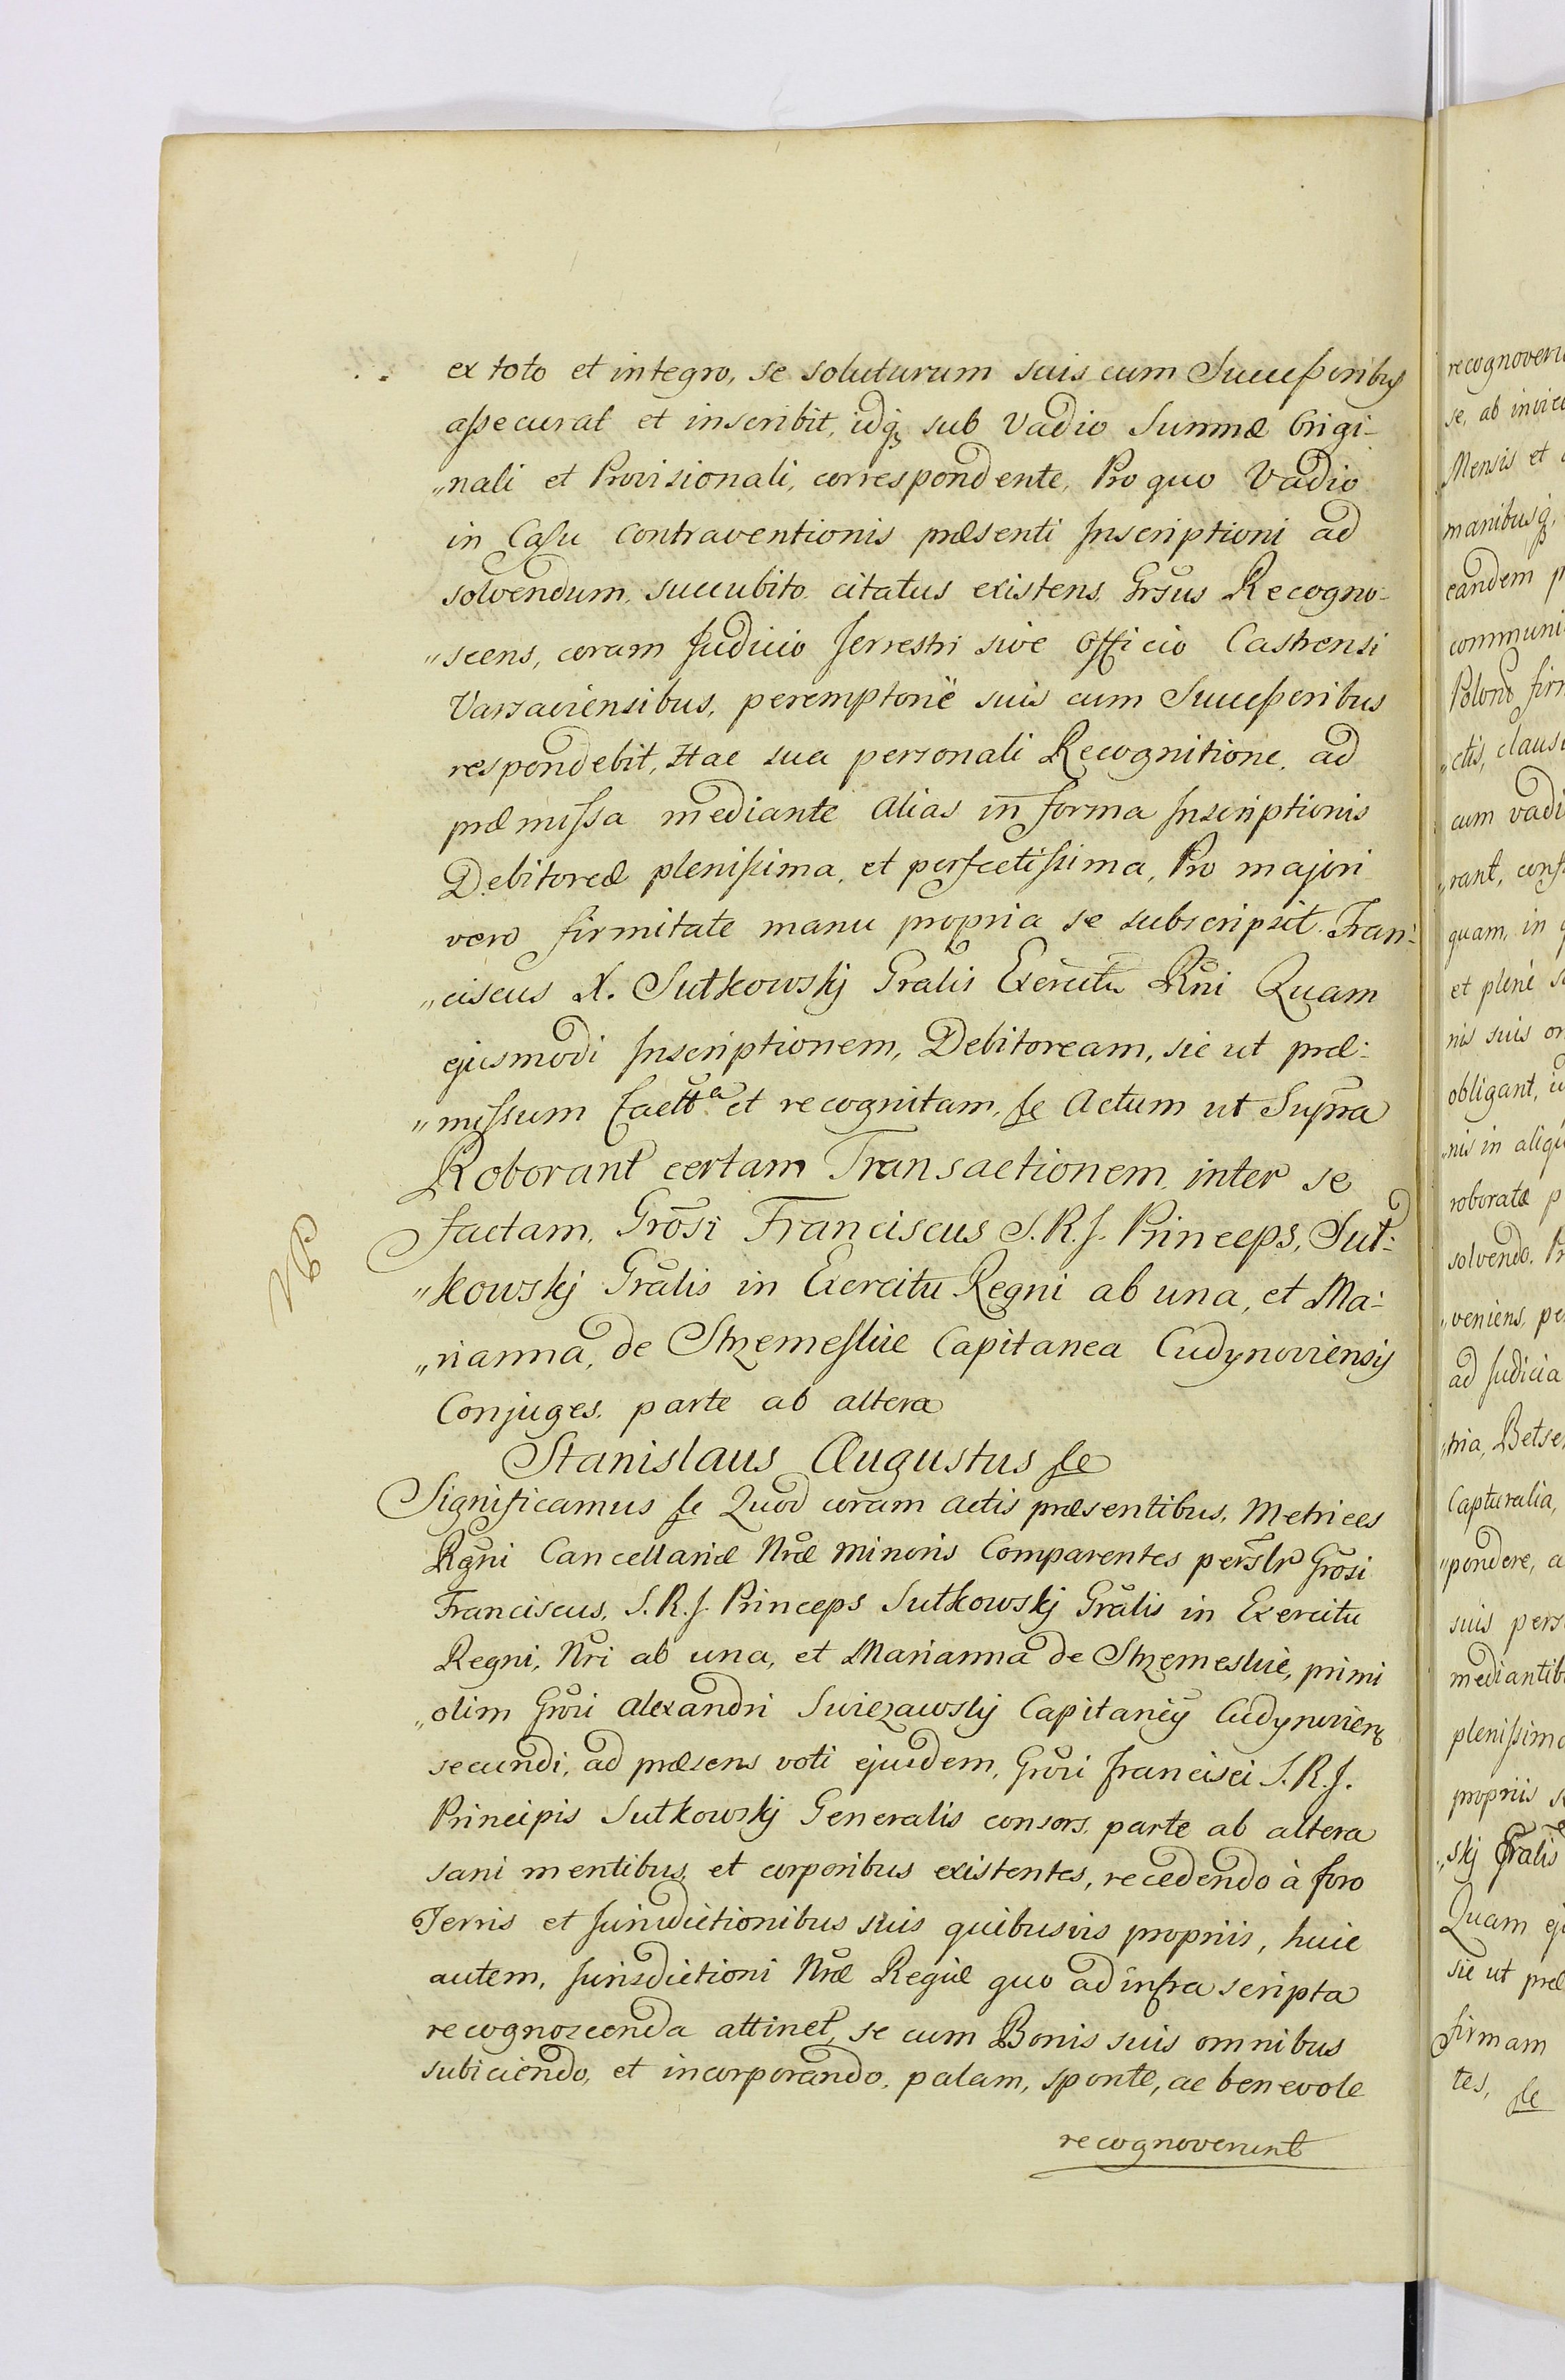 ex toto et integro, se soluturum suis cum Successoribus
assecurat et inscribit, idq sub Vadio Summæ Origi-
„nali et Provisionali, correspondente, Pro quo Vadio
in Casu contraventionis præsenti Inscriptioni ad
solvendum, succubito citatus existens, Grsus Recogno-
„scens, coram Judicio Terrestri sive Officio Castrensi
Varsaviensibus, peremptoriè suis cum Successoribus
respondebit, Hac sua personali Recognitione, ad
præmissa mediante alias in forma Inscriptionis
Debitoreæ plenissima, et perfectissima, Pro majori
vero firmitate manu propria se subscripsit. Fran-
„ciscus X. Sułkowskj Gralis Exercitu Rni Quam
ejusmodi Inscriptionem, Debitoream, sic ut præ-
„missum et recognitam, &c Actum ut Supra
Roborant certam Transactionem inter se
factam, Grosi Franciscus S. R. J. Princeps, Suł-
„kowskj Gralis in Exercitu Regni ab una, et Ma-
„rianna, de Strzemeskie Capitanea Cudynoviensis
Conjuges, parte ab altera
Stanislaus Augustus &c
Significamus &c Quod coram actis præsentibus, Metrices
Rgni Cancellariæ Nræ minoris Comparentes perslr Grosi
Franciscus, S. R. J. Princeps Sułkowskj Gralis in Exercitu
Regni, Nri ab una, et Marianna de Strzemeskie, primi
„olim Grosi Alexandri Swiezawskj Capitanei Cudynovien
secundi, ad præsens voti ejusdem, Grosi Francisci S. R. J.
Principis Sułkowskj Generalis consors, parte ab altera
sani mentibus, et corporibus existentes, recedendo à foro
Terris et Jurisdictionibus suis quibusvis propriis, huic
autem, Jurisdictioni Nræ Regiæ quo ad infra scripta
recognoscenda attinet, se cum Bonis suis omnibus
subiciendo, et incorporando, palam, sponte, ac benevole
recognoverunt
NB
se, ab
Mensis et
manibusq
eandem
cum
quam, in
et plenè
nis suis
obligant,
nis in
roboratæ
solvendo.
„veniens,
ad Judicia
Capturalia,
„pondere,
suis
propriis
„skj Gralis
Quam
sic ut præ
firmam
tes, &c